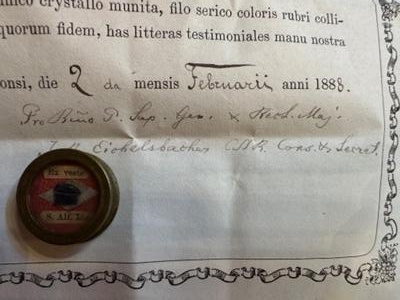 unico crystallo munita, filo serico coloris rubri colli-
quorum fidem, has litteras testimoniales manu nostra
onsi, die 2 da mensis Februarii anni 1888.
Pro Rmo P. Sup. Gen. & Rect. Maj.
Eichelsbacher C.SS.R. Cons. & Secret.
Ex veste
S. Alf.